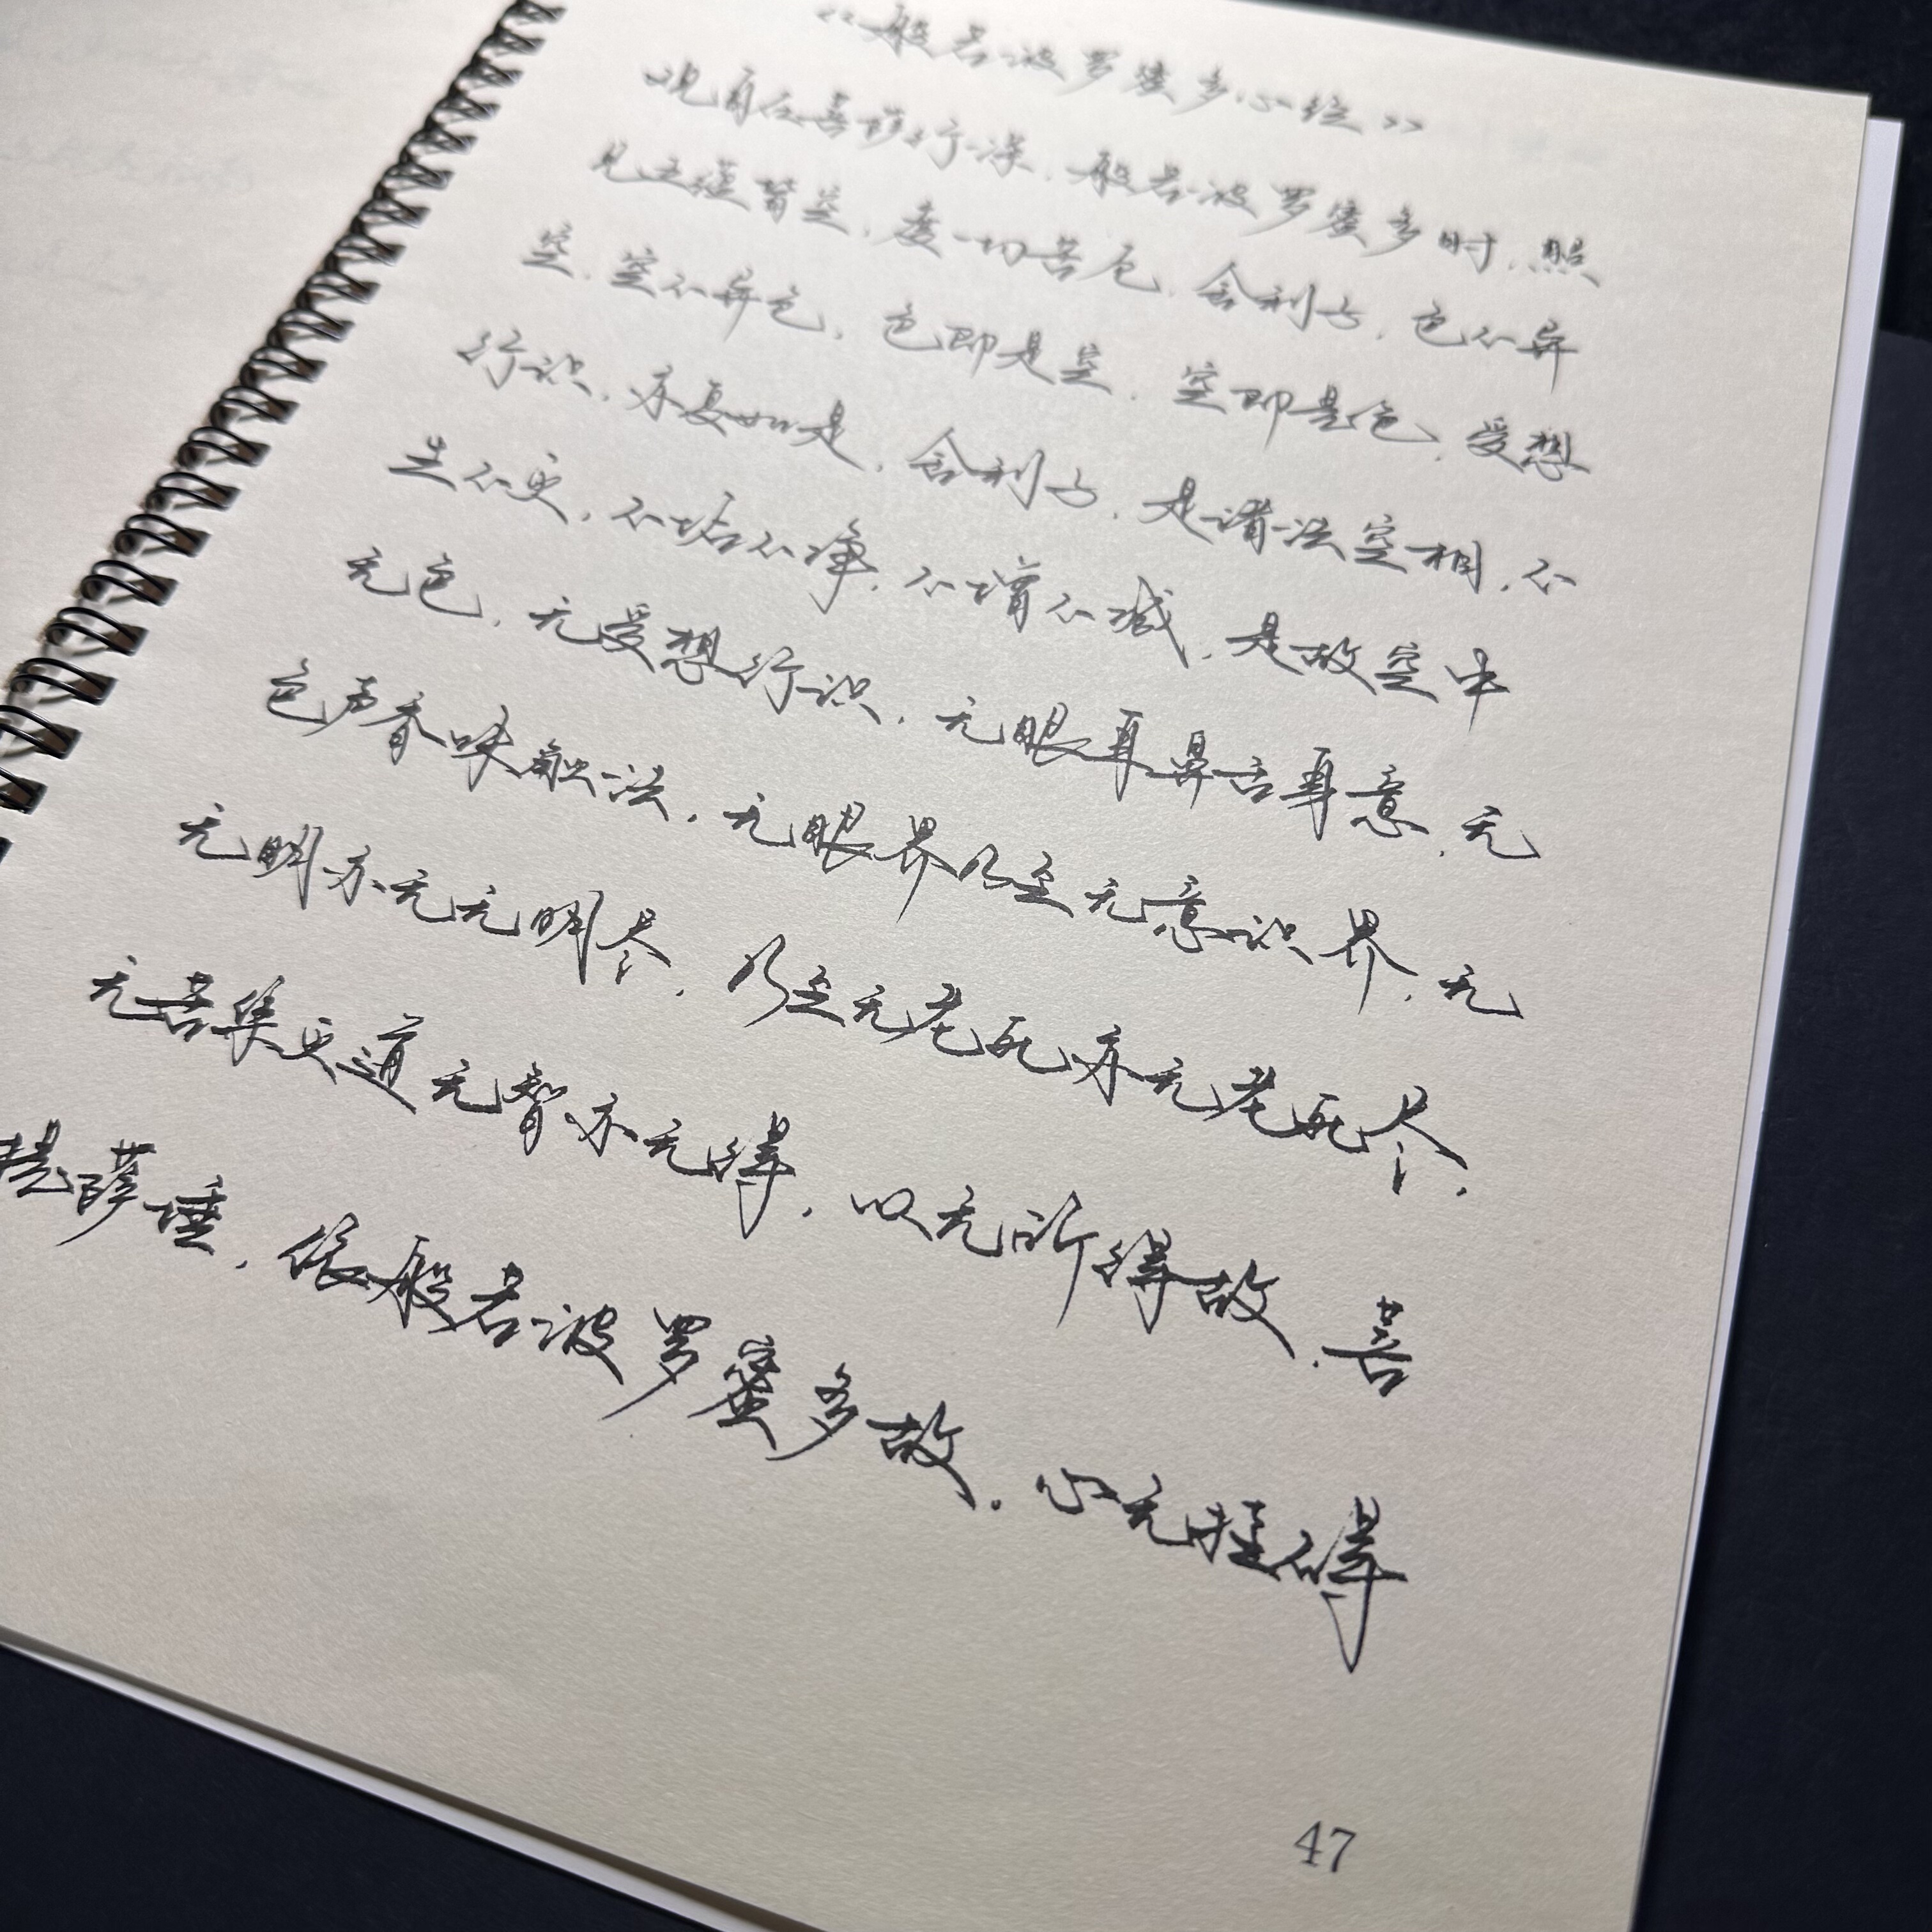 《般若波罗蜜多心经》
观自在菩萨行深,般若波罗蜜多时,照
见五蕴皆空,度一切苦厄,舍利子,色不异
空,空不异色,色即是空,空即是色,受想
行识,亦复如是,舍利子,是诸法空相,不
生不灭,不垢不净,不增不减,是故空中
无色,无受想行识,无眼耳鼻舌身意,无
色声香味触法,无眼界乃至无意识界,无
无明亦无无明尽,乃至无老死亦无老死尽,
无苦集灭道无智亦无得,以无所得故,菩
提萨埵,依般若波罗蜜多故,心无挂碍
47